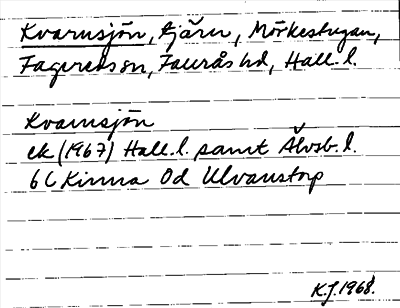 Kvarnsjön, tjärn, Mörkestugan,
Fagereds sn, Faurås hd, Hall. l.
Kvarnsjön
ek (1967) Hall. l. samt Älvsb. l.
6C Kinna 0d Ulvanstorp
K.J. 1968.